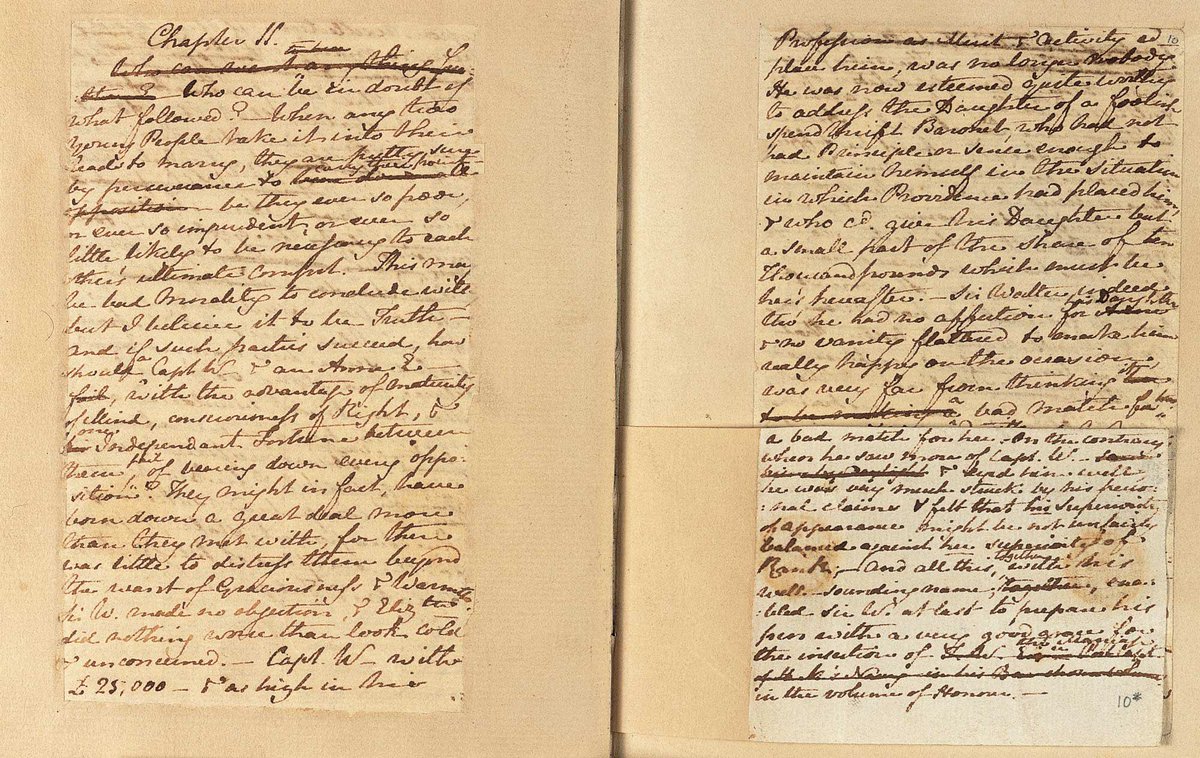 Chapter 11.
to bear
Who can
Who can be in doubt of
what followed? When any two
Young People take it into their
heads to marry, they are pretty sure
by perseverance to carry their point
opposition be they ever so poor,
or ever so imprudent, or ever so
little likely to be necessary to each
other's ultimate comfort. This may
be bad Morality to conclude with,
but I beleive it to be Truth—
and if such parties succeed, how
should a Capt. W— & an Anne E—
fail, with the advantage of maturity
of Mind, consciousness of Right, &
one Independant Fortune between
them fail of bearing down every oppo-
sition? They might in fact, have
born down a great deal more
than they met with, for there
was little to distress them beyond
the want of Graciousness & Warmth.
Sir W. made no objection, & Eliz:th
did nothing worse than look cold
& unconcerned.— Capt. W— with
£25,000— & as high in his
10
Profession as Merit & Activity cd
place him, was no longer nobody.
He was now esteemed quite worthy
to address the Daughter of a foolish
spendthrift Baronet, who had not
had Principle or sense enough to
maintain himself in the Situation
in which Providence had placed him,
& who cd. give his Daughter but
a small part of the share of ten
Thousand pounds which must be
her's hereafter.— Sir Walter indeed
tho' he had no affection for his Daughter Anne
& no vanity flattered to make him
really happy on the occasion,
was very far from thinking it
to be making a bad match for her
a bad match for her. On the contrary
when he saw more of Capt. W—
& eyed him well
he was very much struck by his perso-
:nal claims & felt that his superiority
of appearance might be not unfairly
balanced against her superiority of
Rank;— and all this, together with his
well-sounding name, together, ena-
:bled Sir W. at last to prepare his
pen with a very good grace for
the insertion of the Marriage
in the volume of Honour.—
10*